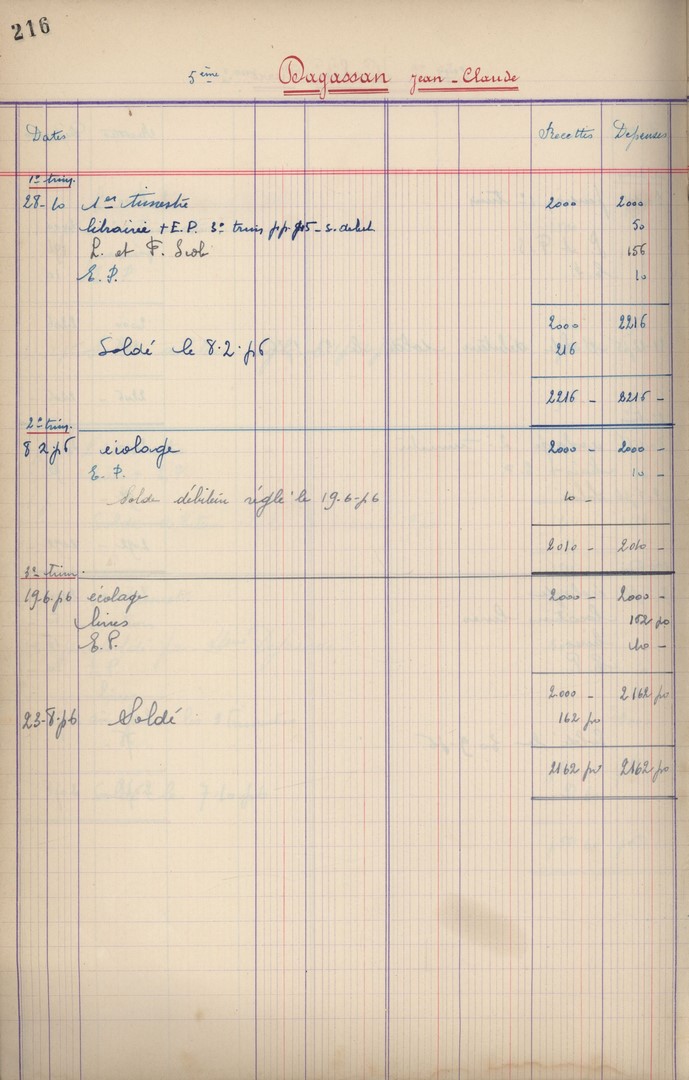 216
5ème Dagassan Jean-Claude
Dates Recettes Dépenses
1er trim.
28-10 1er trimestre 2000 2000
librairie + E.P. 3e trim 50
L. et F. Scol 156
E.P. 10
2000 2216
Soldé le 8.2.56 216
2216 - 2216 -
2e trim.
8 2.56 écolage 2000 - 2000 -
E.P. 10 -
Solde débiteur réglé le 19-6-56 10 -
2010 - 2010 -
3e trim.
19.6.56 écolage 2000 - 2000 -
livres 152 50
E.P. 10 -
2000 - 2162 50
23-8-56 Soldé 162 50
2162 50 2162 50